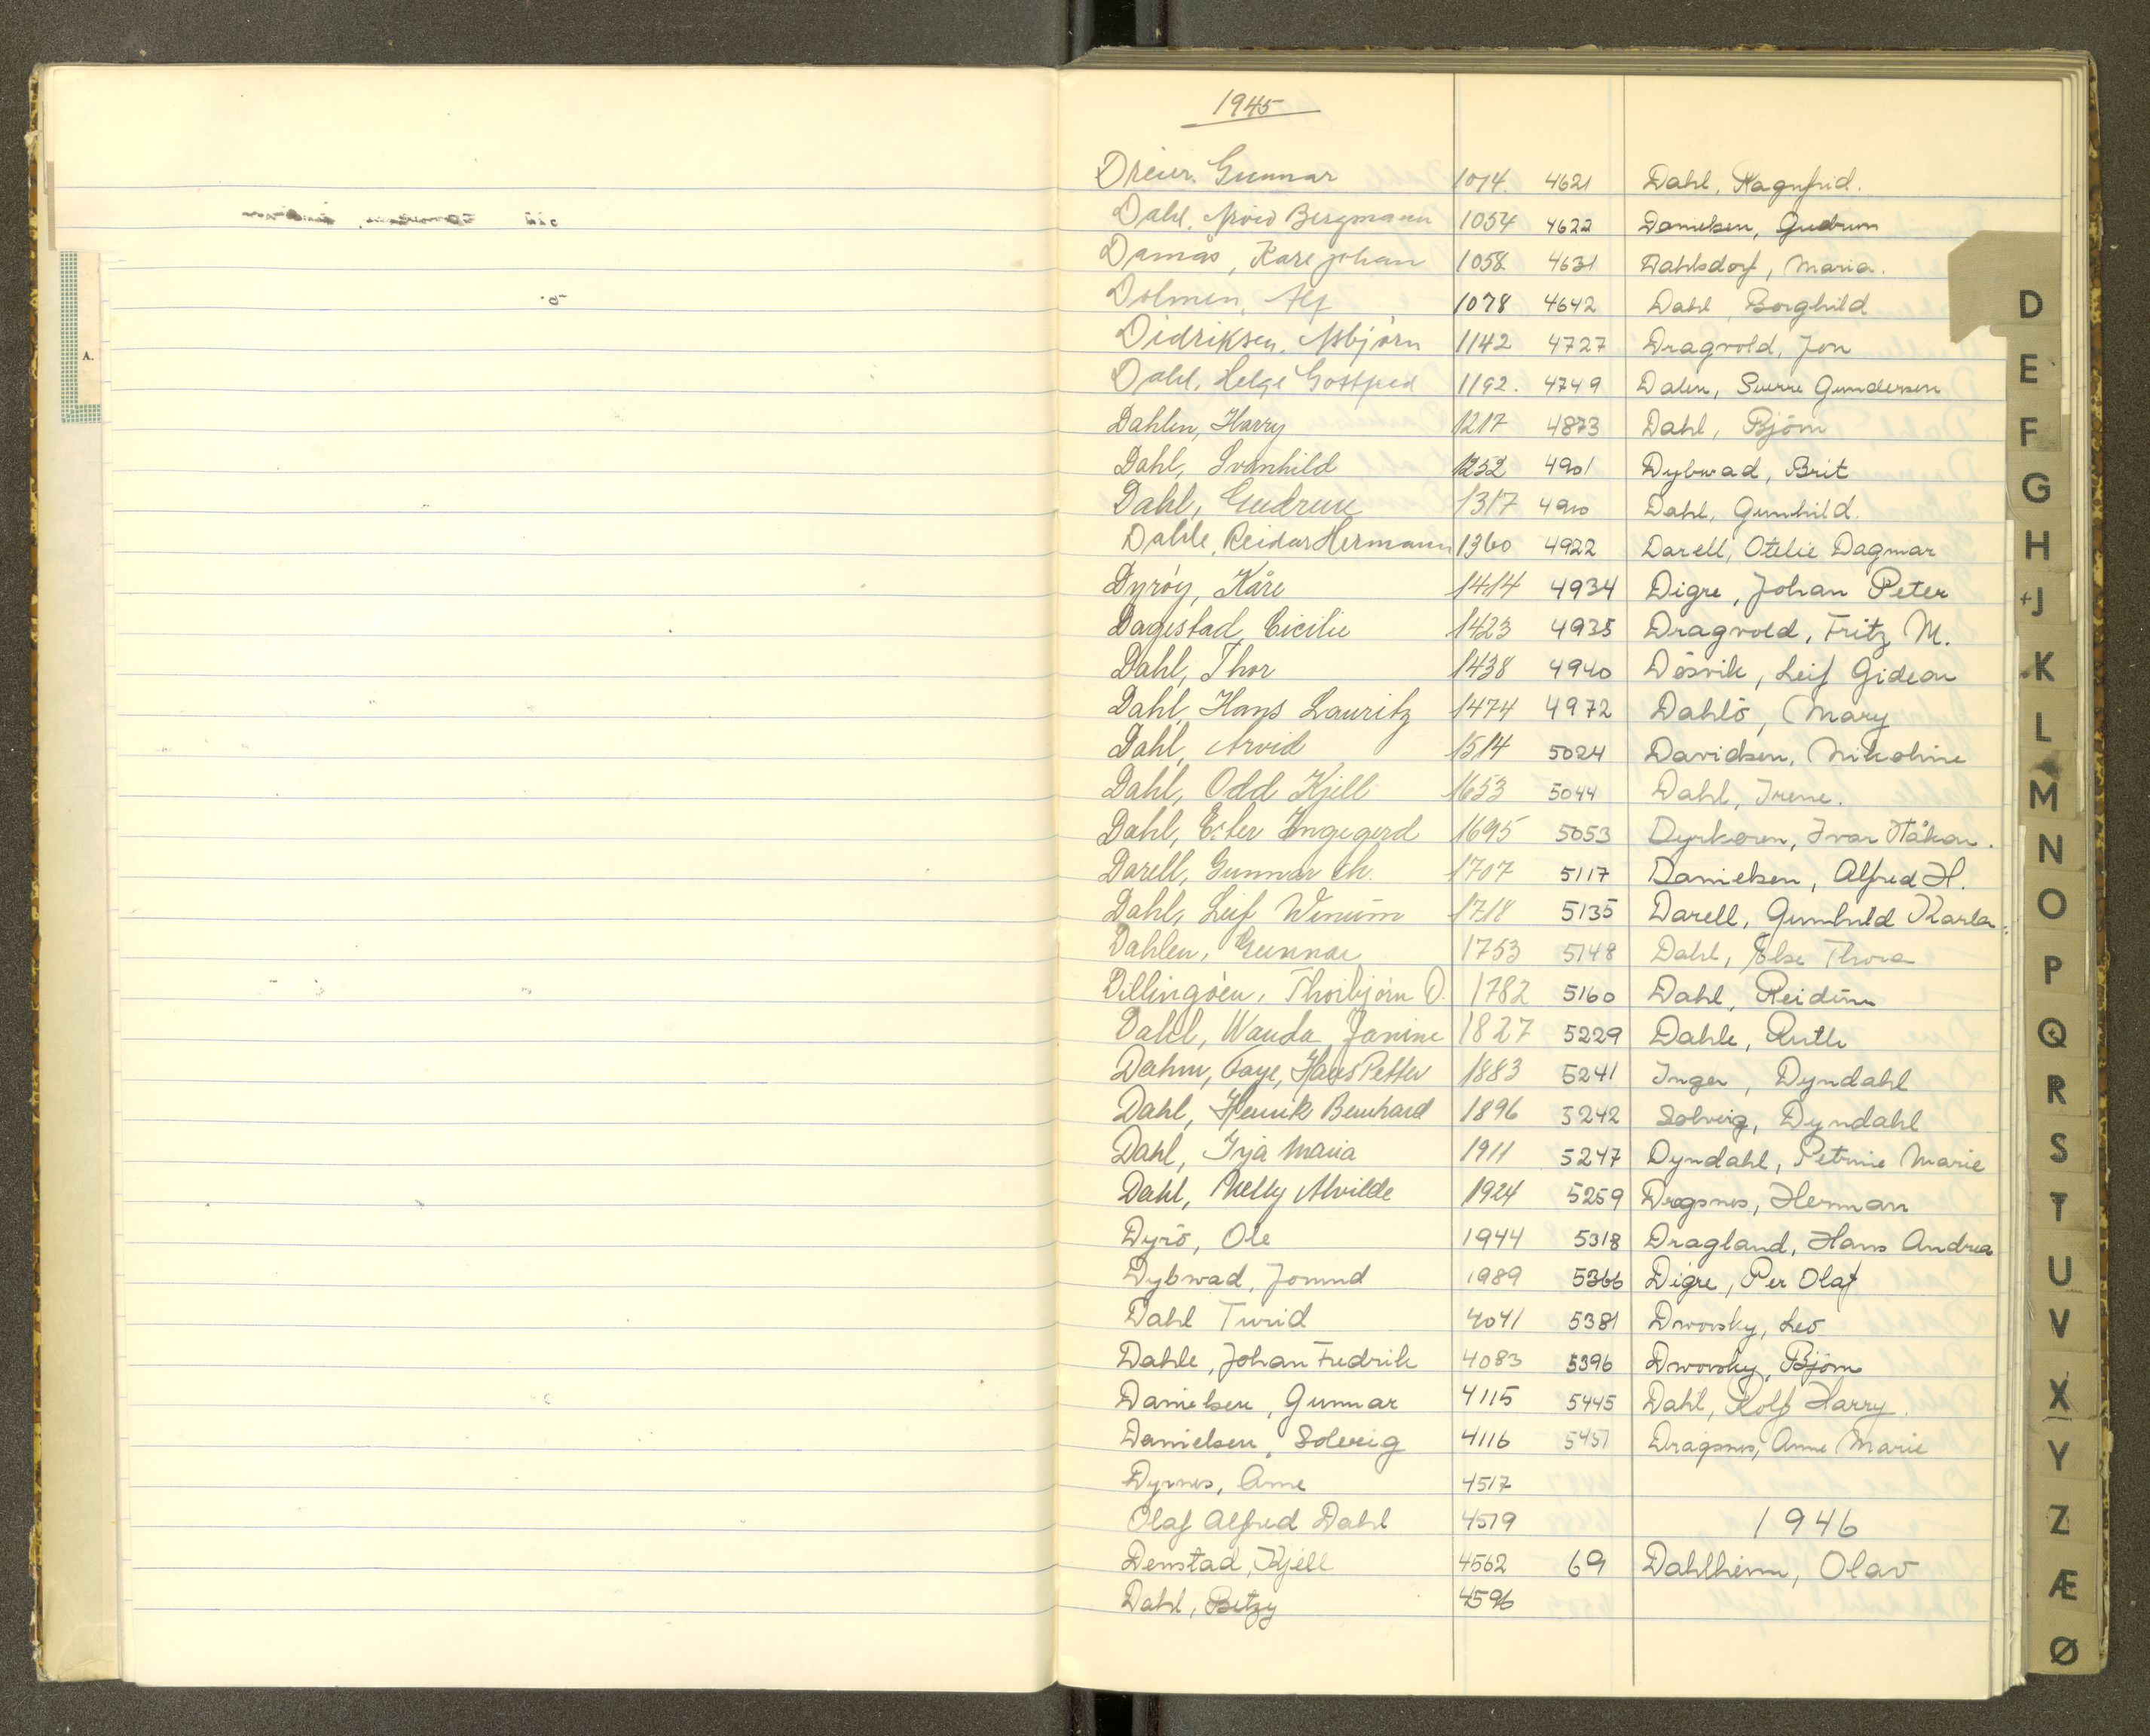 1945
Dreier. Gunnar 1014. 4621 Dahl, Ragnfrid.
Dahl, Arvid Bergmann 1054 4622 Danielsen, Gudrun
Damås, Kare Johan 1058 4631 Dahlsdorf, Maria.
Dolmen, Alf 1078 4642 Dahl Borghild
Didriksen, Asbjørn 1142 4727 Dragvold, Jon
Dahl, Helge Gottfred 1192. 4749 Dalen, Sverre Gundersen
Dahlen, Harry 1217 4873 Dahl, Bjørn
Dahl, Svanhild 1252 4901 Dybwad, Brit
Dahl, Gudrun 1317 4910 Dahl, Gunhild.
Dahle, Reidar Hermann 1360 4922 Darell, Otelie Dagmar
Dyrøy, Kåre 1414 4934 Digre, Johan Peter
Dagestad, Cicilie 1423 4935 Dragvold, Fritz M.
Dahl, Thor 1438 4940 Døsvik, Leif Gideon
Dahl, Hans Lauritz 1474 4972 Dahlö, Mary
Dahl, Arvid 1514 5024 Davidsen, Nikoline
Dahl, Odd Kjell 1653 5044 Dahl, Irene.
Dahl, Ester Ingegerd 1695 5053 Dyrkoren, Ivar Håkon.
Darell, Gunnar Ch. 1707 5117 Danielsen, Alfred H.
Dahl, Leif 1718 5135 Darell, Gunhild Karla.
Dahlen, Gunnar 1753 5148 Dahl, Else Thora
Dillingøen, Thorbjørn O. 1782 5160 Dahl, Reidun
Dahl, Wanda Janine 1827 5229 Dahle, Ruth
Dahm, Faye, Hans Petter 1883 5241 Inger, Dyndahl
Dahl, Henrik Bernhard 1896 5242 Solveig, Dyndahl
Dahl, Irja Maria 1911 5247 Dyndahl, Petrine Marie
Dahl, Nelly Alvilde 1924 5259 Dragsnes, Herman
Dyrö, Ole 1944 5318 Dragland, Hans Andrea
Dybwad, Jomund 1989 5366 Digre, Per Olaf
Dahl Turid 4041 5381 Dworsky, Leo
Dahle, Johan Fredrik 4083 5396 Dworsky, Bjørn
Danielsen, Gunnar 4115 5445 Dahl, Rolf Harry.
Danielsen, Solveig 4116 5451 Dragsnes, Anne Marie
Dyrnes, Arne 4517
Olaf Alfred Dahl 4519 1946
Denstad, Kjell 4562 69 Dahlheim, Olav
Dahl, Betzy 4596
A.
D
E
F
G
H
+J
K
L
M
N
O
P
Q
R
S
T
U
V
X
Y
Z
Æ
Ø